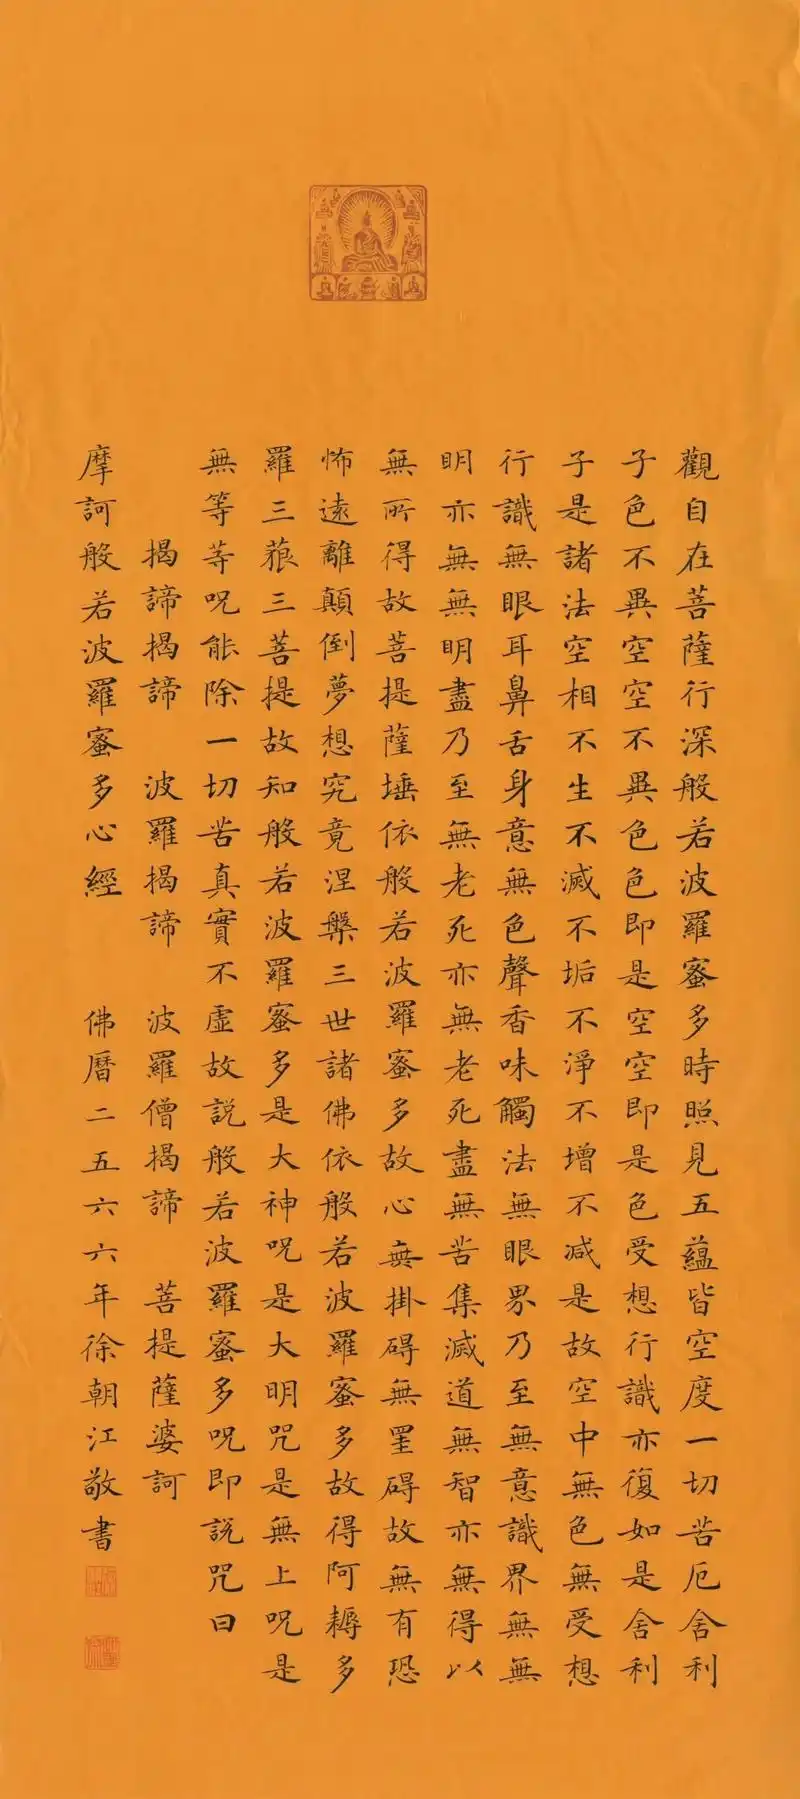 觀自在菩薩行深般若波羅蜜多時照見五蘊皆空度一切苦厄舍利
子色不異空空不異色色即是空空即是色受想行識亦復如是舍利
子是諸法空相不生不滅不垢不淨不增不减是故空中無色無受想
行識無眼耳鼻舌身意無色聲香味觸法無眼界乃至無意識界無無
明亦無無明盡乃至無老死亦無老死盡無苦集滅道無智亦無得以
無所得故菩提薩埵依般若波羅蜜多故心無掛碍無罣碍故無有恐
怖遠離顛倒夢想究竟涅槃三世諸佛依般若波羅蜜多故得阿耨多
羅三藐三菩提故知般若波羅蜜多是大神呪是大明咒是無上呪是
無等等呪能除一切苦真實不虛故說般若波羅蜜多呪即說咒曰
揭諦揭諦 波羅揭諦 波羅僧揭諦 菩提薩婆訶
摩訶般若波羅蜜多心經 佛曆二五六六年徐朝江敬書